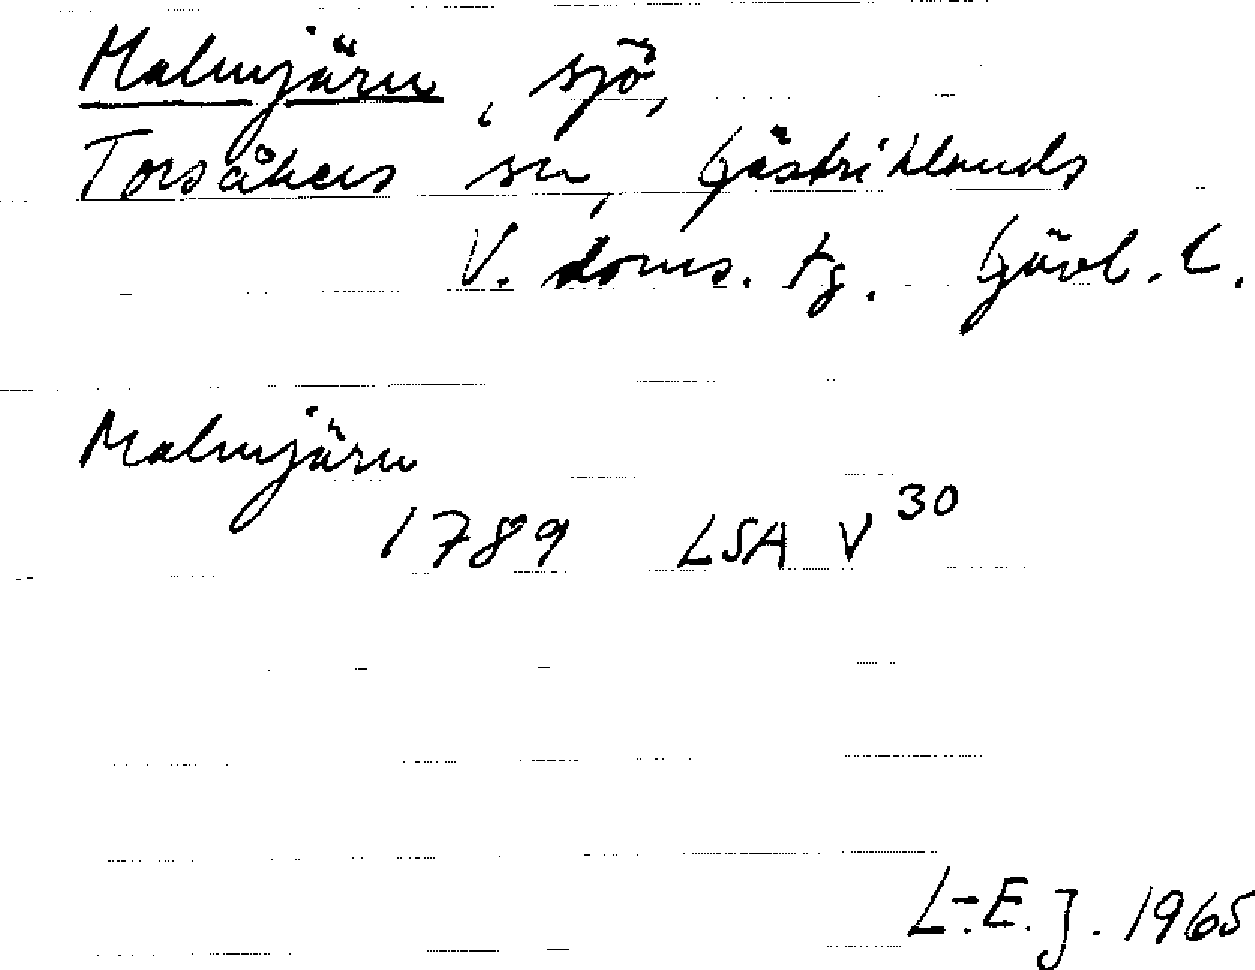 Malmjärn, sjö,
Torsåkers sn, Gästriklands
V. doms. tg. Gävl. l.
Malmjärn
1789 LSA V 30
L-E. J. 1965